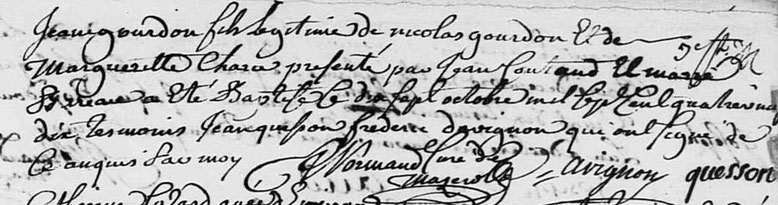 Jean gourdon fils legitime de nicolas gourdon Et de
Marguerette Chara presenté par Jean Coutaud Et marie
a Eté Baptisé Le dix sept octobre mil sept Cent quatre vin
dix tesmoins Jean quesson frederic davignon qui ont signé de
Ce anquis sac moy Normand Curé de avignon quesson
Mazerolle